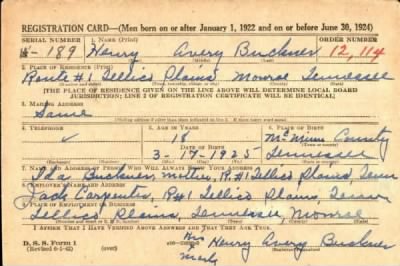 REGISTRATION CARD—(Men born on or after January 1, 1922 and on or before June 30, 1924)
SERIAL NUMBER 1. NAME (Print) ORDER NUMBER
189 Henry Avery Buckner 12,114
(First) (Middle) (Last)
2. PLACE OF RESIDENCE (Print)
Route #1 Tellico Plains, Monroe Tennessee
[THE PLACE OF RESIDENCE GIVEN ON THE LINE ABOVE WILL DETERMINE LOCAL BOARD
JURISDICTION; LINE 2 OF REGISTRATION CERTIFICATE WILL BE IDENTICAL]
3. MAILING ADDRESS
Same
4. TELEPHONE 5. AGE IN YEARS 6. PLACE OF BIRTH
18 McMinn County
DATE OF BIRTH
3-17-1925 Tennessee
7. NAME AND ADDRESS OF PERSON WHO WILL ALWAYS KNOW YOUR ADDRESS
Buckner, mother, R#1 Tellico Plains, Tenn
8. EMPLOYER'S NAME AND ADDRESS
Jack Carpenter, R#1 Tellico Plains, Tenn
9. PLACE OF EMPLOYMENT OR BUSINESS
Tellico Plains, Tennessee, Monroe
I AFFIRM THAT I HAVE VERIFIED ABOVE ANSWERS AND THAT THEY ARE TRUE.
D. S. S. Form 1
(over)
His
Henry Avery Buckner
Mark